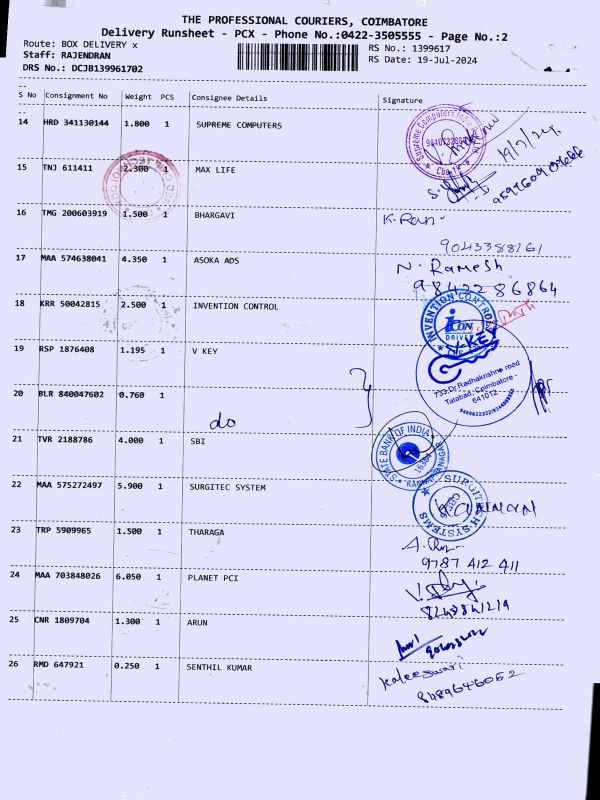 THE PROFESSIONAL COURIERS, COIMBATORE
Delivery Runsheet - PCX - Phone No.:0422-3505555 - Page No.:2
Route: BOX DELIVERY x RS No.: 1399617
Staff: RAJENDRAN RS Date: 19-Jul-2024
DRS No.: DCJB139961702
S No Consignment No Weight PCS Consignee Details Signature
14 HRD 341130144 1.800 1 SUPREME COMPUTERS
19/7/24
15 TNJ 611411 2.300 1 MAX LIFE
16 TMG 200603919 1.500 1 BHARGAVI K. Ran
9043388261
17 MAA 574638041 4.350 1 ASOKA ADS N. Ramesh
98422 86864
18 KRR 50042815 2.500 1 INVENTION CONTROL INVENTION CONTROL
icon
DRIVE
19 RSP 1876408 1.195 1 V KEY V-KEY
733, Dr. Radhakrishna road
Tatabad, Coimbatore -
641012
20 BLR 840047602 0.760 1
do
21 TVR 2188786 4.000 1 SBI STATE BANK OF INDIA
22 MAA 575272497 5.900 1 SURGITEC SYSTEM SURGITECH SYSTEMS
KANNAN
23 TRP 5909965 1.500 1 THARAGA
9787 412 411
24 MAA 703848026 6.050 1 PLANET PCI
25 CNR 1809704 1.300 1 ARUN
26 RMD 647921 0.250 1 SENTHIL KUMAR Kaleeswari